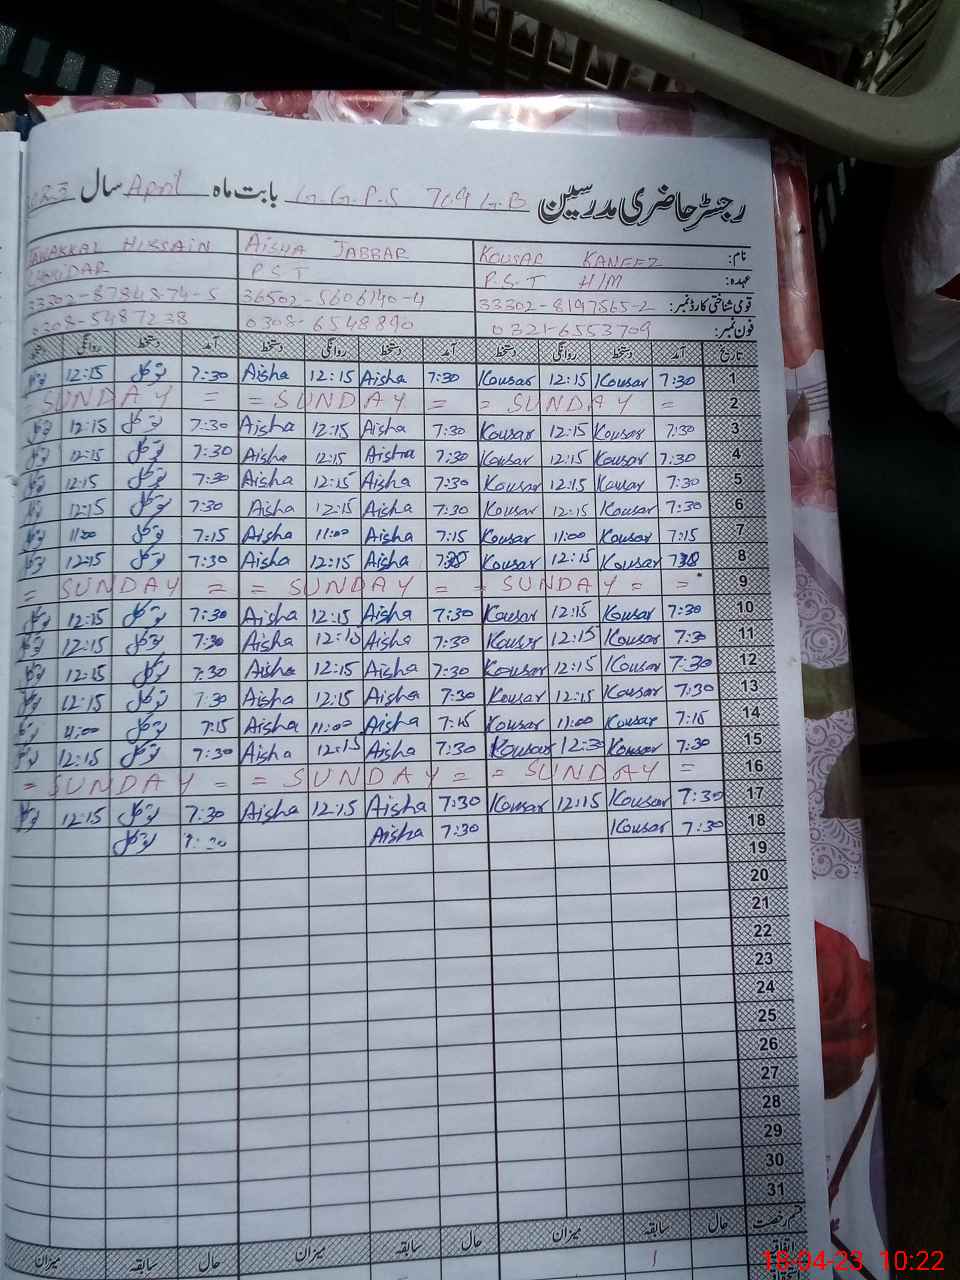 رجسٹر حاضری مدرسین G.G.P.S 709 G.B بابت ماہ April سال
نام: KOUSAR KANEEZ AISHA JABBAR TAWAKKAL HUSSAIN
عہدہ: P.S.T H/M P.S.T
قومی شناختی کارڈ نمبر: 33302-8197565-2 36502-5606140-4 33302-87848.74-5
فون نمبر: 0321-6553709 0308-6548890 0308-5487238
تاریخ آمد دستخط روانگی دستخط آمد دستخط روانگی دستخط آمد دستخط روانگی دستخط
1 7:30 Kousar 12:15 Kousar 7:30 Aisha 12:15 Aisha 7:30 توکل 12:15 توکل
2 = SUNDAY = = SUNDAY = = SUNDAY =
3 7:30 Kousar 12:15 Kousar 7:30 Aisha 12:15 Aisha 7:30 توکل 12:15 توکل
4 7:30 Kousar 12:15 Kousar 7:30 Aisha 12:15 Aisha 7:30 توکل 12:15 توکل
5 7:30 Kousar 12:15 Kousar 7:30 Aisha 12:15 Aisha 7:30 توکل 12:15 توکل
6 7:30 Kousar 12:15 Kousar 7:30 Aisha 12:15 Aisha 7:30 توکل 12:15 توکل
7 7:15 Kousar 11:00 Kousar 7:15 Aisha 11:00 Aisha 7:15 توکل 11:00 توکل
8 Kousar 12:15 Kousar Aisha 12:15 Aisha 7:30 توکل 12:15 توکل
9 = = SUNDAY = = SUNDAY = = SUNDAY =
10 7:30 Kousar 12:15 Kousar 7:30 Aisha 12:15 Aisha 7:30 توکل 12:15 توکل
11 7:30 Kousar 12:15 Kousar 7:30 Aisha 12:15 Aisha 7:30 توکل 12:15 توکل
12 7:30 Kousar 12:15 Kousar 7:30 Aisha 12:15 Aisha 7:30 توکل 12:15 توکل
13 7:30 Kousar 12:15 Kousar 7:30 Aisha 12:15 Aisha 7:30 توکل 12:15 توکل
14 7:15 Kousar 11:00 Kousar 7:15 Aisha 11:00 Aisha 7:15 توکل 11:00 توکل
15 7:30 Kousar 12:30 Kousar 7:30 Aisha 12:15 Aisha 7:30 توکل 12:15 توکل
16 = SUNDAY = = SUNDAY = = SUNDAY =
17 7:30 Kousar 12:15 Kousar 7:30 Aisha 12:15 Aisha 7:30 توکل 12:15 توکل
18 7:30 Kousar 7:30 Aisha توکل
19
20
21
22
23
24
25
26
27
28
29
30
31
قسم رخصت حال سابقہ میزان حال سابقہ میزان حال سابقہ میزان
اتفاقیہ 1
18-04-23 10:22